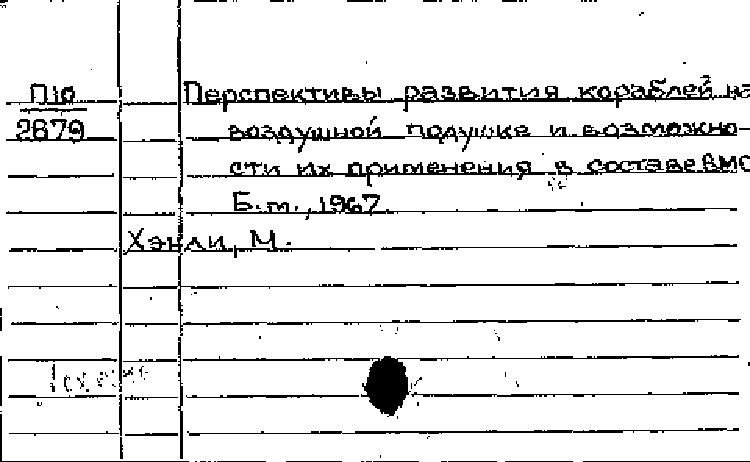 П10 Перспективы развития кораблей на
2679 воздушной подушке и возможно-
сти их применения в составе ВМС
Б.м., 1967.
Хэнли, М.